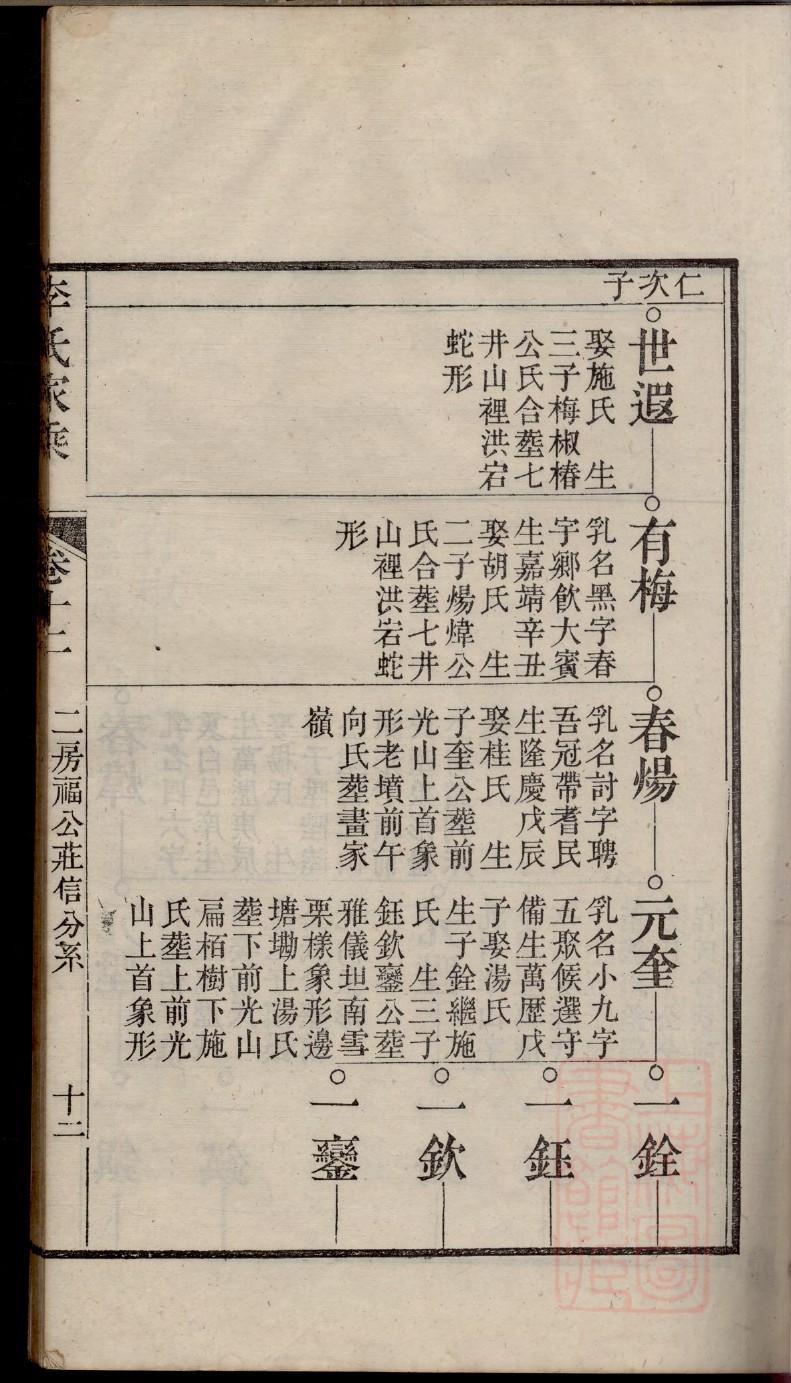 仁次子
世遐
娶施氏　生
三子梅椒椿
公氏合塟七
井山裡洪宕
蛇形
有梅
乳名黑字春
宇鄉飲大賓
生嘉靖辛丑
娶胡氏　生
二子煬煒公
氏合塟七井
山裡洪宕蛇
形
春煬
乳名討字聘
吾冠帶耆民
生隆慶戊辰
娶桂氏　生
子奎公塟前
光山上首象
形老墳前午
向氏塟畫家
嶺
元奎
乳名小九字
五聚候選守
備生萬歷戊
子娶湯氏
生子銓繼施
氏　生三子
鈺欽鑾公塟
雅儀坦南雪
栗樣象形邊
塘塝上湯氏
塟下前光山
扁栢樹下施
氏塟上前光
山上首象形
一銓
一鈺
一欽
一鑾
李氏家乘
卷十二
二房福公莊信分系
十二